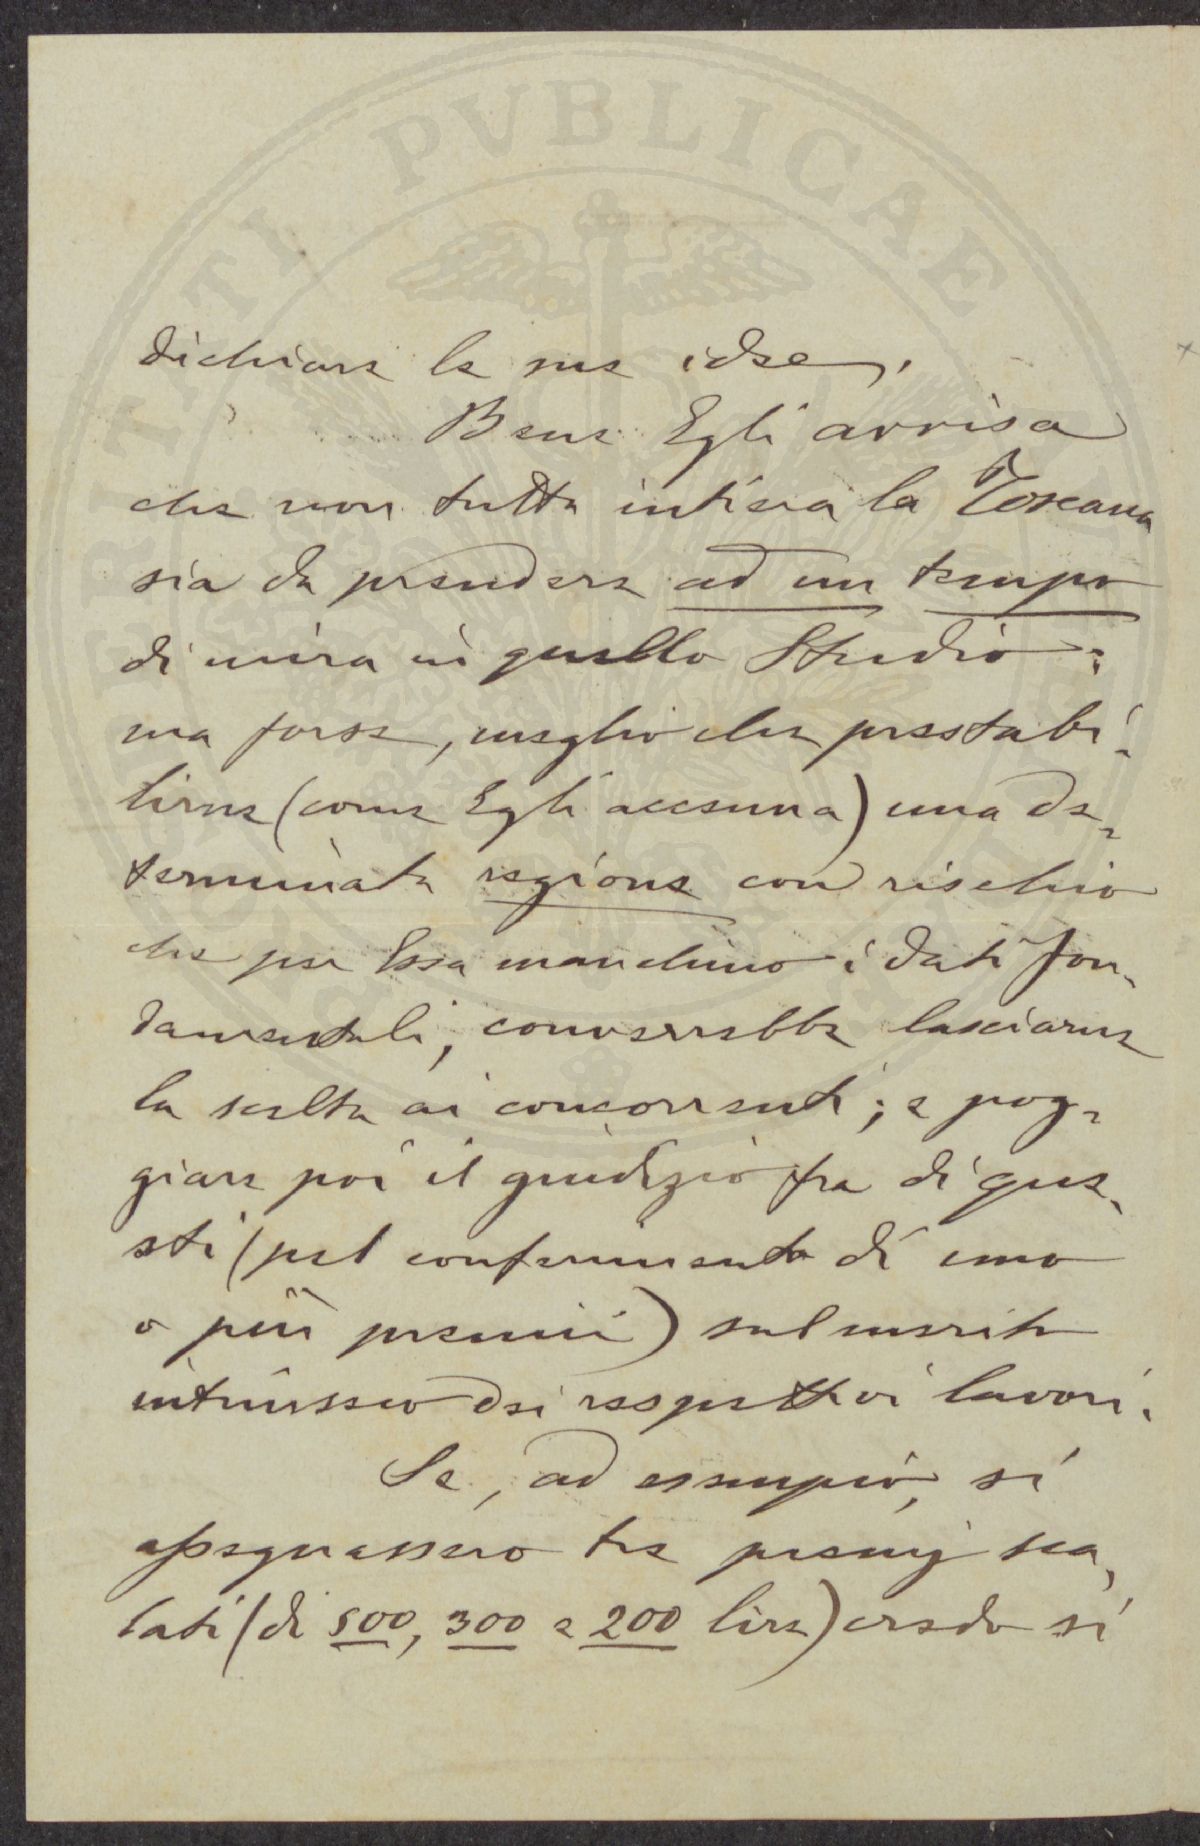 PVBLICAE
dichiare le sue idee.
Bene Egli avvisa
che non tutta intiera la Toscana
sia da prendere ad un tempo
di mira in quello Studio;
ma forse, meglio che prestabi-
lirne (come Egli accenna) una de-
terminata regione con rischio
che per Essa manchino i dati fon-
damentali, converrebbe lasciarne
la scelta ai concorrenti; e pog-
giare poi il giudizio fra di que-
sti (pel conferimento di uno
o più premii) sul merito
intrinseco dei respettivi lavori.
Se, ad esempio, si
assegnassero tre premij sca-
lati (di 500, 300 e 200 lire) credo si